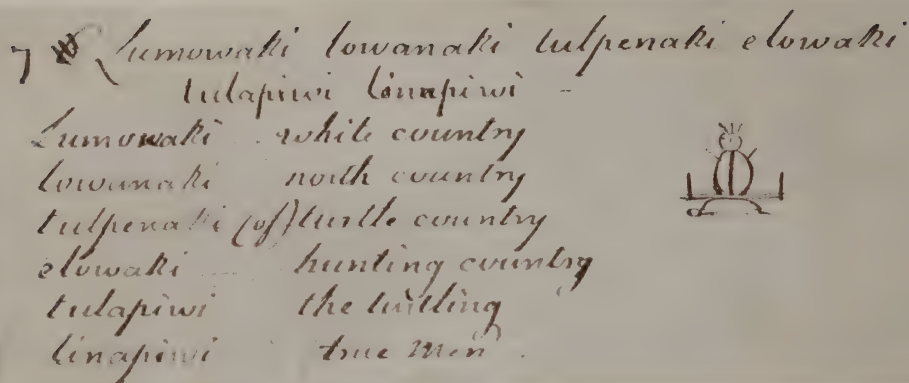 7 Lumowaki lowanaki tulpenaki elowaki
tulapiwi linapiwi -
Lumowaki white country
lowanaki north country
tulpenaki (of) turtle country
elowaki hunting country
tulapiwi the turtling
linapiwi true men.